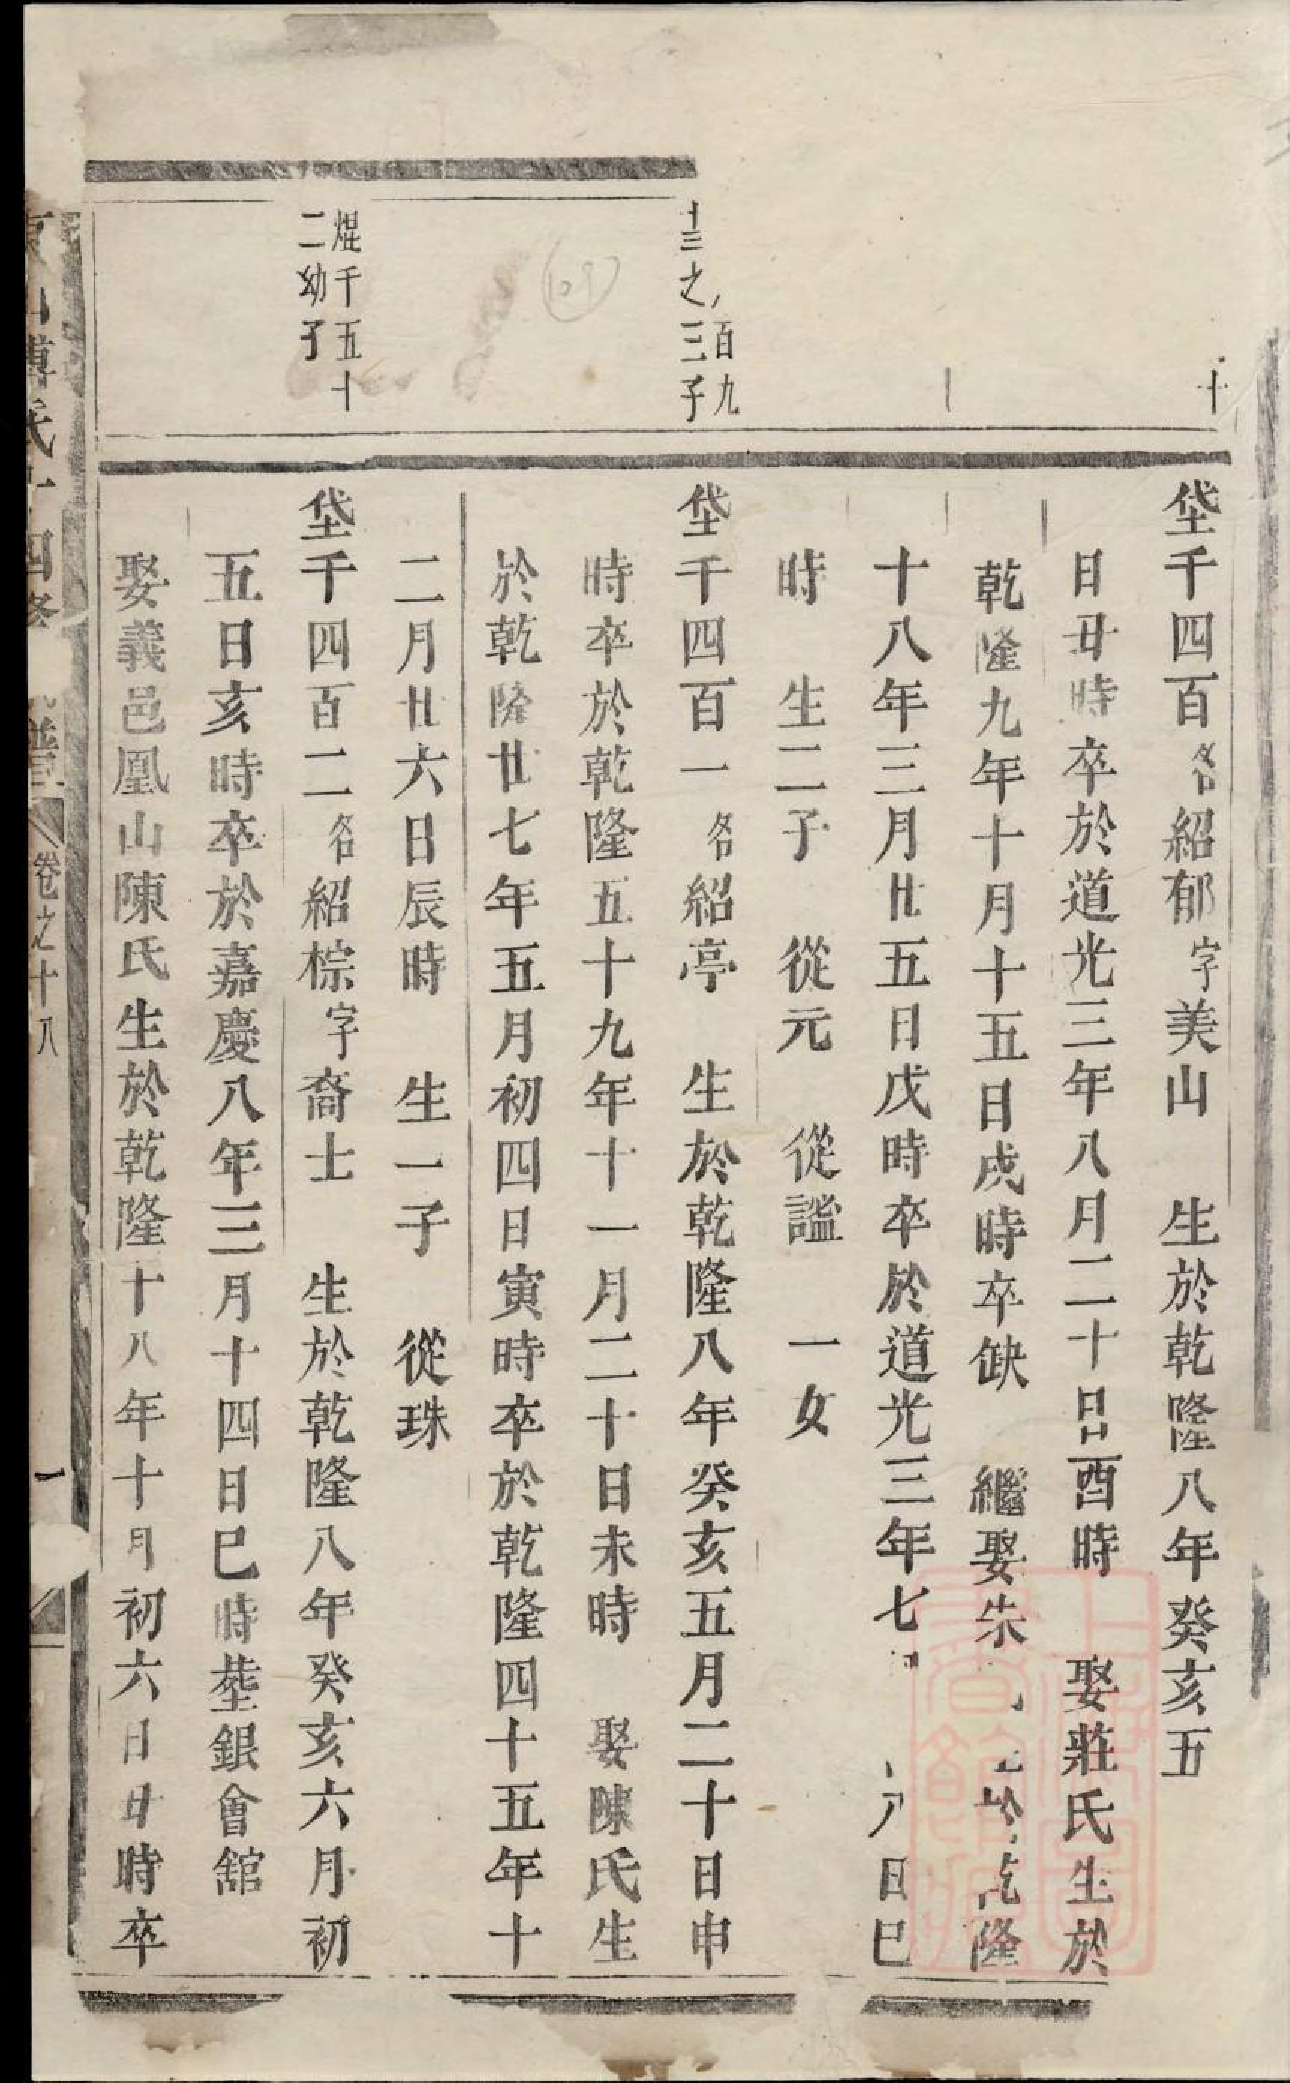 十
垈千四百名紹郁字美山 生於乾隆八年癸亥五
日丑時卒於道光三年八月二十日酉時 娶莊氏生於
乾隆九年十月十五日戌時卒缺 繼娶朱 於乾隆
十八年三月廿五日戊時卒於道光三年七 日巳
時 生二子 從元 從謐 一女
百九
十三之三子
垈千四百一名紹亭 生於乾隆八年癸亥五月二十日申
時卒於乾隆五十九年十一月二十日未時 娶陳氏生
於乾隆廿七年五月初四日寅時卒於乾隆四十五年十
二月廿六日辰時 生一子 從珠
焜千五十
二幼子
垈千四百二名紹棕字裔士 生於乾隆八年癸亥六月初
五日亥時卒於嘉慶八年三月十四日巳時塟銀會舘
娶義邑凰山陳氏生於乾隆十八年十月初六日丑時卒
氏十四修 譜 卷之十八 一
109